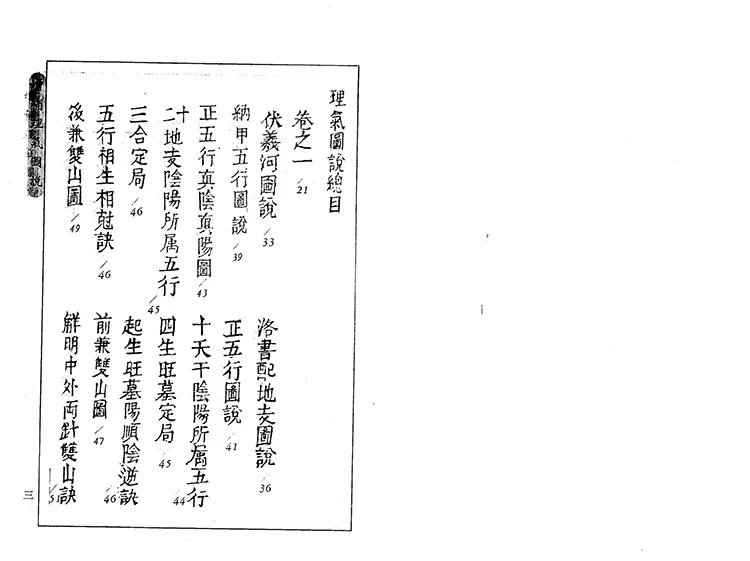 理氣圖說總目
卷之一 /21
伏羲河圖說 /33
洛書配地支圖說 /36
納甲五行圖說 /39
正五行圖說 /41
正五行真陰真陽圖 /43
十天干陰陽所属五行 /44
十二地支陰陽所属五行 /45
四生旺墓定局 /45
三合定局 /46
起生旺墓陽順陰逆訣 /46
五行相生相尅訣 /46
前兼雙山圖 /47
後兼雙山圖 /49
解明中外両針雙山訣 /51
理氣圖說
三